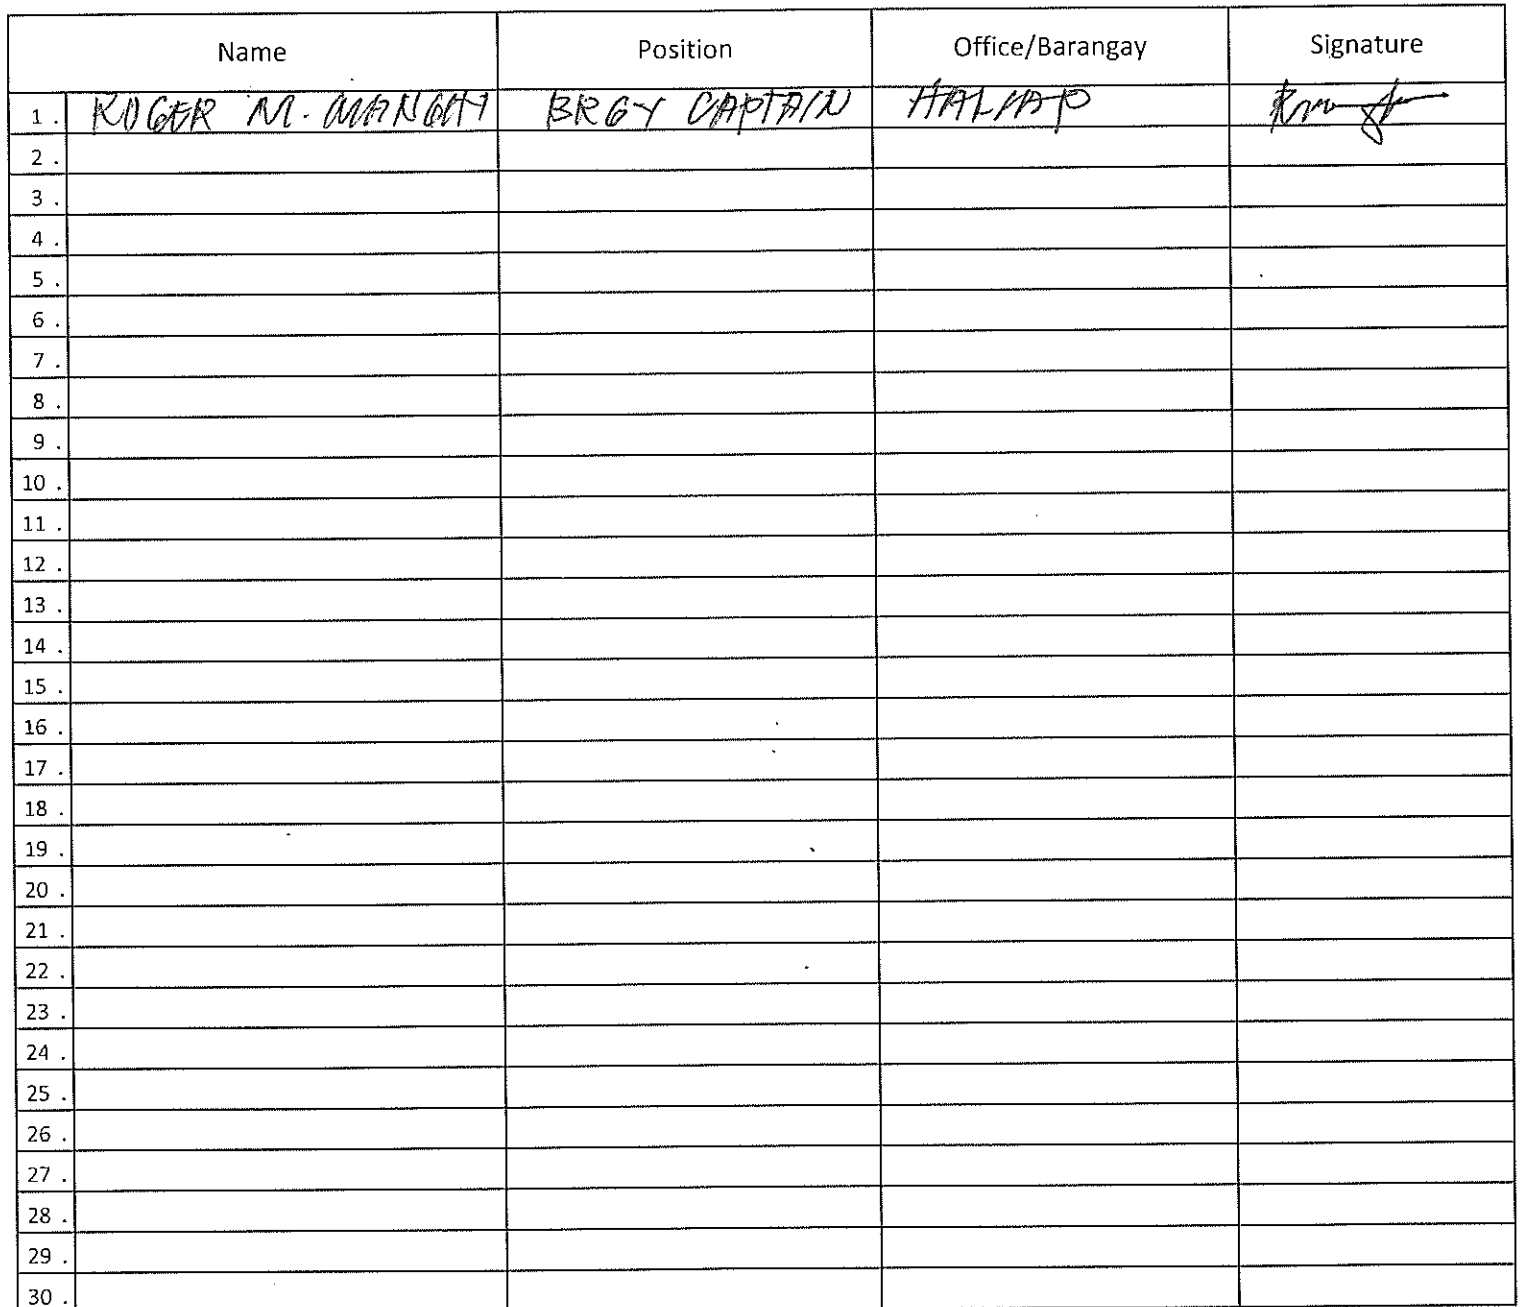 Name Position Office/Barangay Signature
1 . ROGER M. BRGY CAPTAIN HALIAP
2 .
3 .
4 .
5 .
6 .
7 .
8 .
9 .
10 .
11 .
12 .
13 .
14 .
15 .
16 .
17 .
18 .
19 .
20 .
21 .
22 .
23 .
24 .
25 .
26 .
27 .
28 .
29 .
30 .